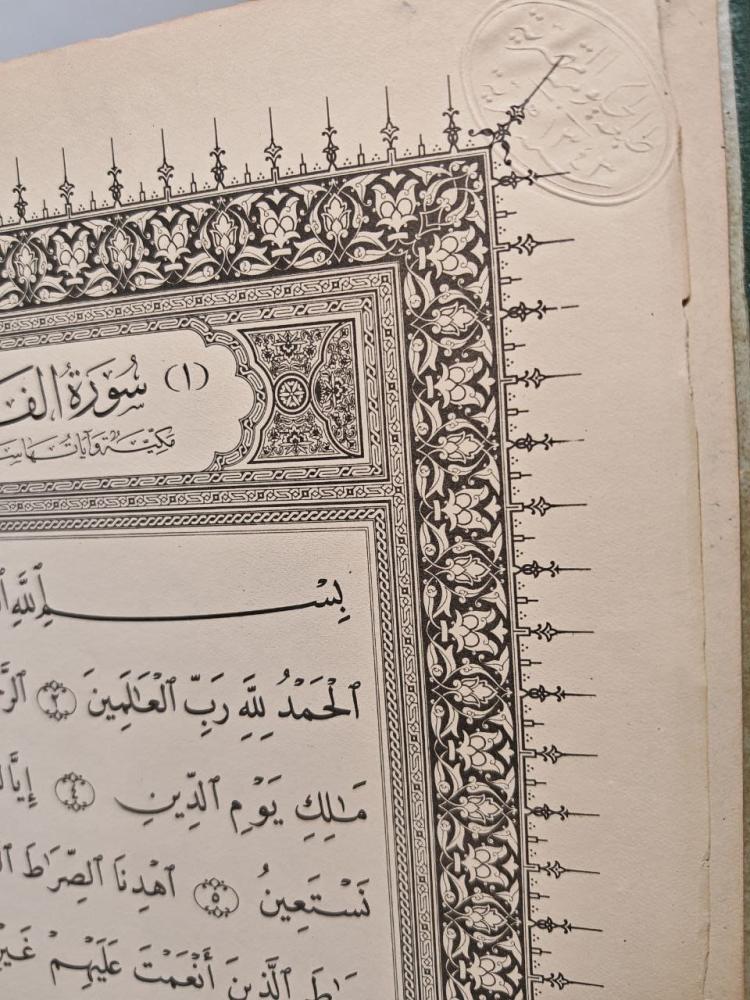 طبعة الحكومة المصرية
(١) سُورَةُ الفَ
مكيّة وآياتها س
بِسْمِ ٱللَّهِ ٱل
ٱلْحَمْدُ لِلَّهِ رَبِّ ٱلْعَٰلَمِينَ ٢ ٱلرَّ
مَٰلِكِ يَوْمِ ٱلدِّينِ ٤ إِيَّا
نَسْتَعِينُ ٥ ٱهْدِنَا ٱلصِّرَٰطَ ٱل
صِرَٰطَ ٱلَّذِينَ أَنْعَمْتَ عَلَيْهِمْ غَيْرِ